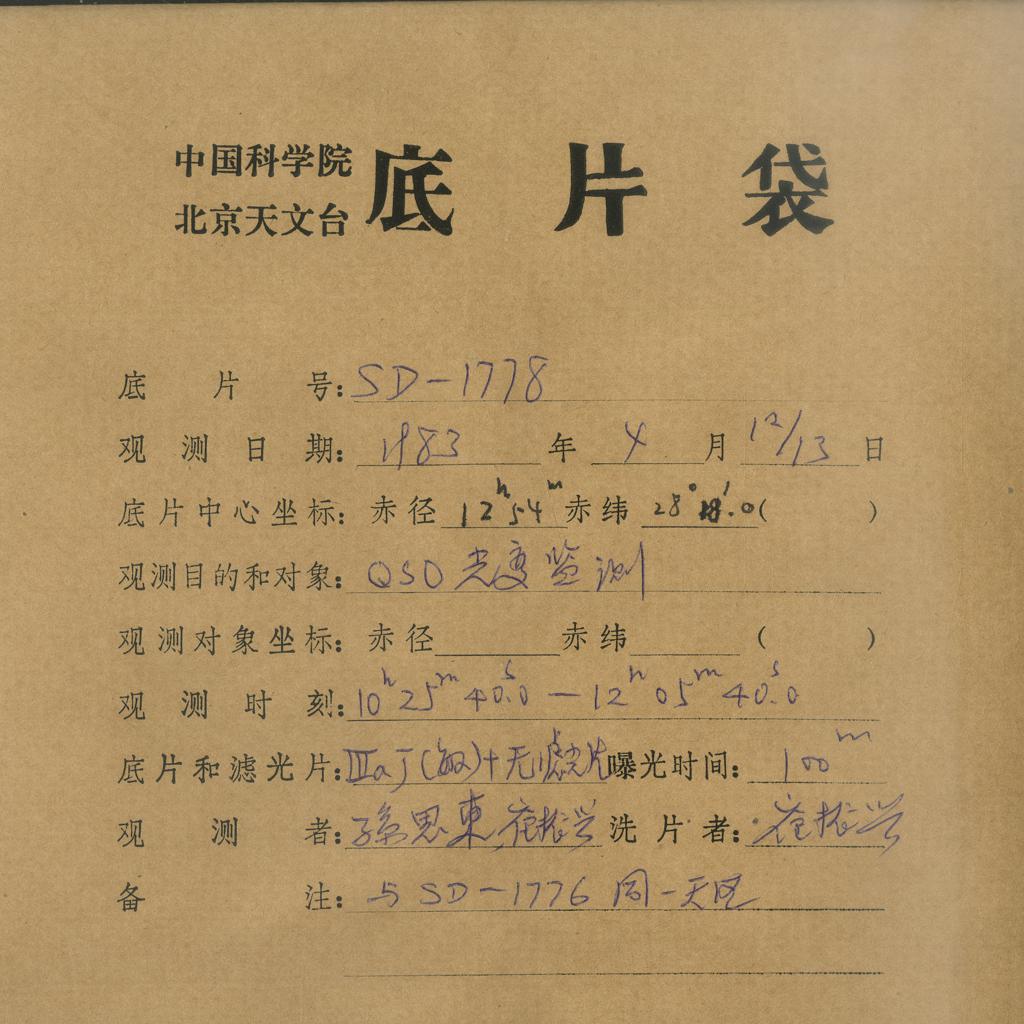 中国科学院
北京天文台
底片袋
底片号：SD-1778
观测日期：1983年4月12/13日
底片中心坐标：赤径12h54m赤纬28°18'.0（ ）
观测目的和对象：QSO光度监测
观测对象坐标：赤径 赤纬 （ ）
观测时刻：10h25m40s.0—12h05m40s.0
底片和滤光片：ⅢaJ(敏)+无滤光片曝光时间：100m
观测者：孫思東,崔振兴洗片者：崔振兴
备注：与SD-1776同一天区